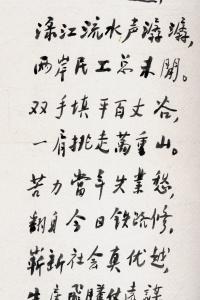 渌江流水声潺潺，
两岸民工总未閒。
双手填平百丈谷，
一肩挑走萬重山。
苦力當年失業愁，
翻身今日鉄路修。
嶄新社会真优越，
生产飛騰仗